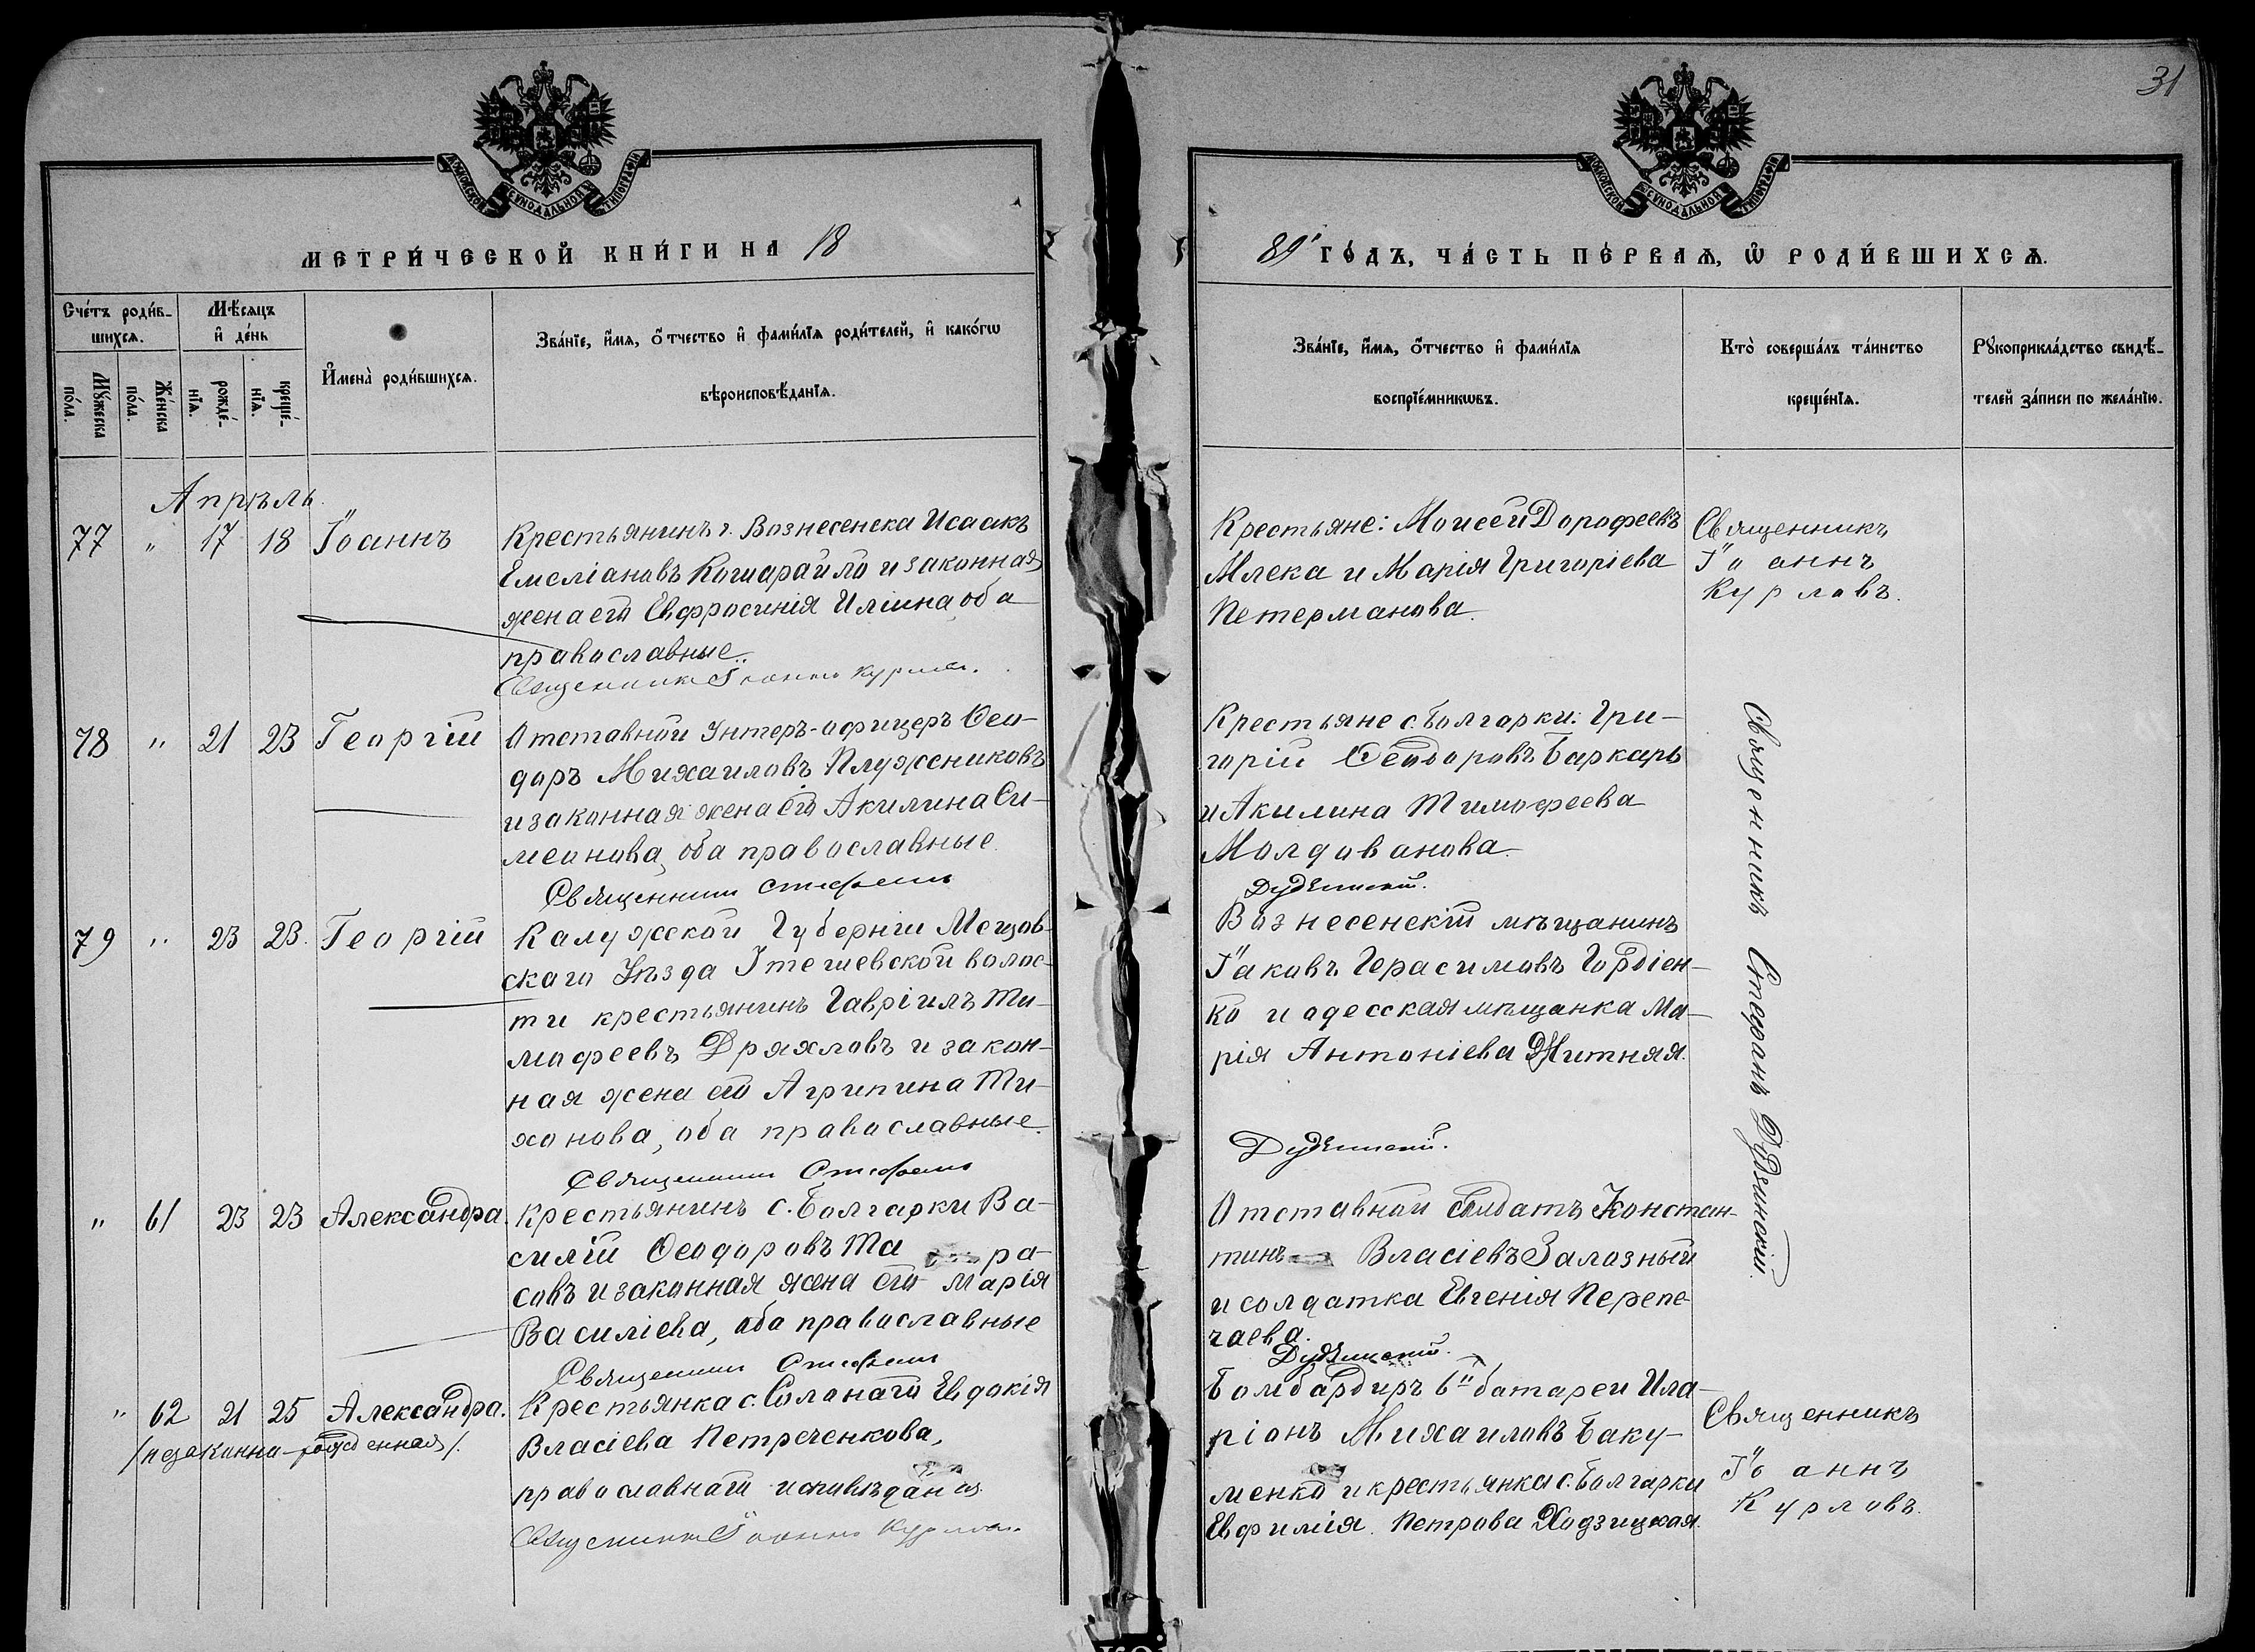 31
МОСКОВСКОЙ СѴНОДАЛЬНОЙ ТИПОГРАФІИ
МОСКОВСКОЙ СѴНОДАЛЬНОЙ ТИПОГРАФІИ
МЕТРИ́ЧЕСКОЙ КНИ́ГИ НА 18
89 ГО́ДЪ, ЧА́СТЬ ПЕ́РВАѦ, Ѡ РОДИ́ВШИХСѦ.
Сче́тъ роди́в-
шихсѧ.
Мꙋ́жеска
по́ла.
Же́нска
по́ла.
Мѣ́сѧцъ
и҆ де́нь
рожде́-
нїѧ.
креще́-
нїѧ.
И҆мена̀ роди́вшихсѧ.
Зва́нїе, и҆́мѧ, ѻ҆́тчество и҆ фами́лїѧ роди́телей, и҆ како́гѡ
вѣроисповѣ́данїѧ.
Зва́нїе, и҆́мѧ, ѻ҆́тчество и҆ фами́лїѧ
воспрїе́мникѡвъ.
Кто̀ соверша́лъ та́инство
креще́нїѧ.
Рꙋкоприкла́дство свидѣ́-
телей за́писи по жела́нїю.
Апрѣль
77 " 17 18 Іоаннъ
Крестьянинъ г. Вознесенска Исаакъ
Емеліановъ Кошарайло и законная
жена его Евфросинія Иліина, оба
православные.
Священникъ Іоаннъ Курловъ.
Крестьяне: Моисей Дорофеевъ
Млека и Марія Григоріева
Петерманова.
Священникъ
Іоаннъ
Курловъ.
78 " 21 23 Георгій
Отставной Унтеръ-офицеръ Ѳео-
доръ Михаиловъ Плужениковъ
и законная жена его Акилина Си-
меонова, оба православные.
Священникъ Стефанъ
Крестьяне с. Болгарки: Гри-
горій Ѳеодоровъ Баркарь
и Акилина Тимофеева
Молдованова.
Дудзинскій.
79 " 23 23. Георгій
Калужской Губерніи Мещов-
скаго Уѣзда волос-
ти крестьянинъ Гавріилъ Ти-
мофеевъ Дряхловъ и закон-
ная жена его Агрипина Ти-
хонова, оба православные.
Священникъ Стефанъ
Вознесенскій мѣщанинъ
Іаковъ Герасимовъ Гордіен-
ко и одесская мѣщанка Ма-
рія Антоніева Житняя.
Дудзинскій.
" 61 23 23 Александра.
Крестьянинъ с. Болгарки Ва-
силій Ѳеодоровъ Та ра-
совъ и законная жена его Марія
Василіева, оба православные
Священникъ Стефанъ
Отставной солдатъ Констан-
тинъ Власіевъ Залозный
и солдатка Евгенія Перепе-
чаева.
Дудзинскій.
Священникъ Стефанъ Дудзинскій.
" 62 21 25 Александра.
/незаконно-рожденная/.
Крестьянка с. Соланаго Евдокія
Власіева Петреченкова,
православнаго исповѣданія.
Священникъ Іоаннъ Курловъ.
Бомбардиръ 6й батареи Ила-
ріонъ Михаиловъ Баку-
менко и крестьянка с. Болгарки
Евфимія Петрова Ходзицкая.
Священникъ
Іоаннъ
Курловъ.